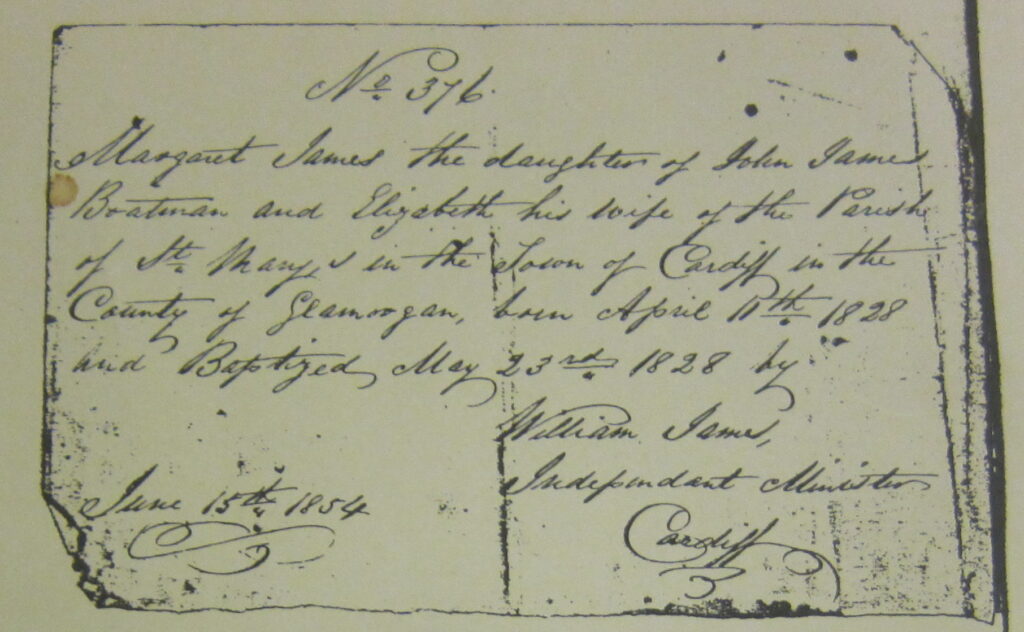 No 376.
Margaret James the daughter of John James
Boatman and Elizabeth his wife of the Parish
of St. Mary's in the Town of Cardiff in the
County of Glamorgan, born April 11th 1828
and Baptized May 23rd 1828 by
William James,
Independant Minister
June 15th 1854
Cardiff